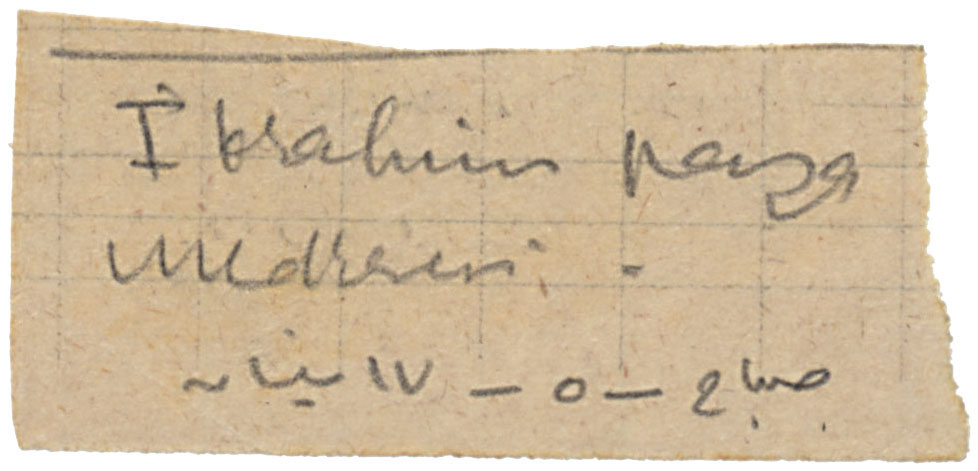 İbrahim paşa
medresesi -
صباح — ٥ — ١٧ نيسان